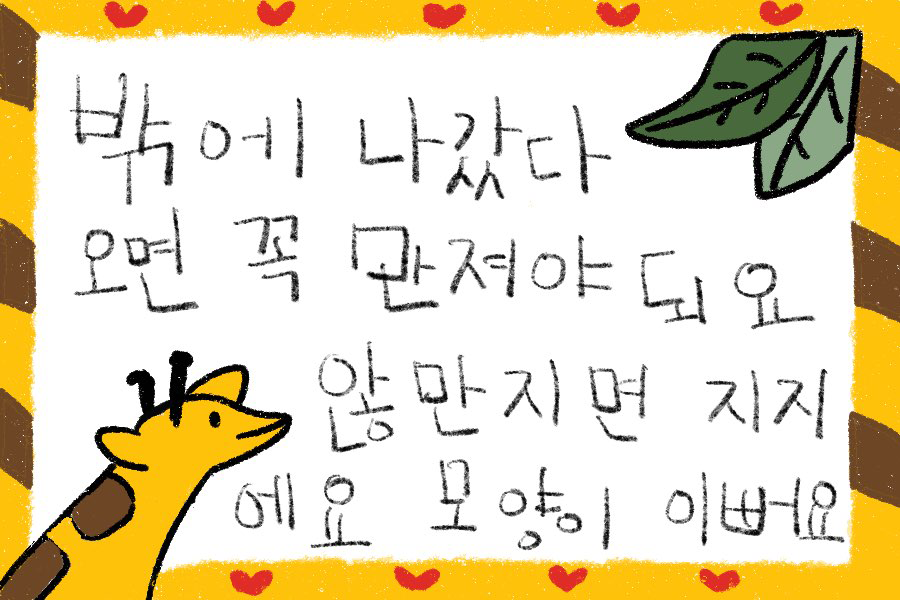 밖에 나갔다
오면 꼭 만져야 되요
않만지면 지지
에요 모양이 이뻐요